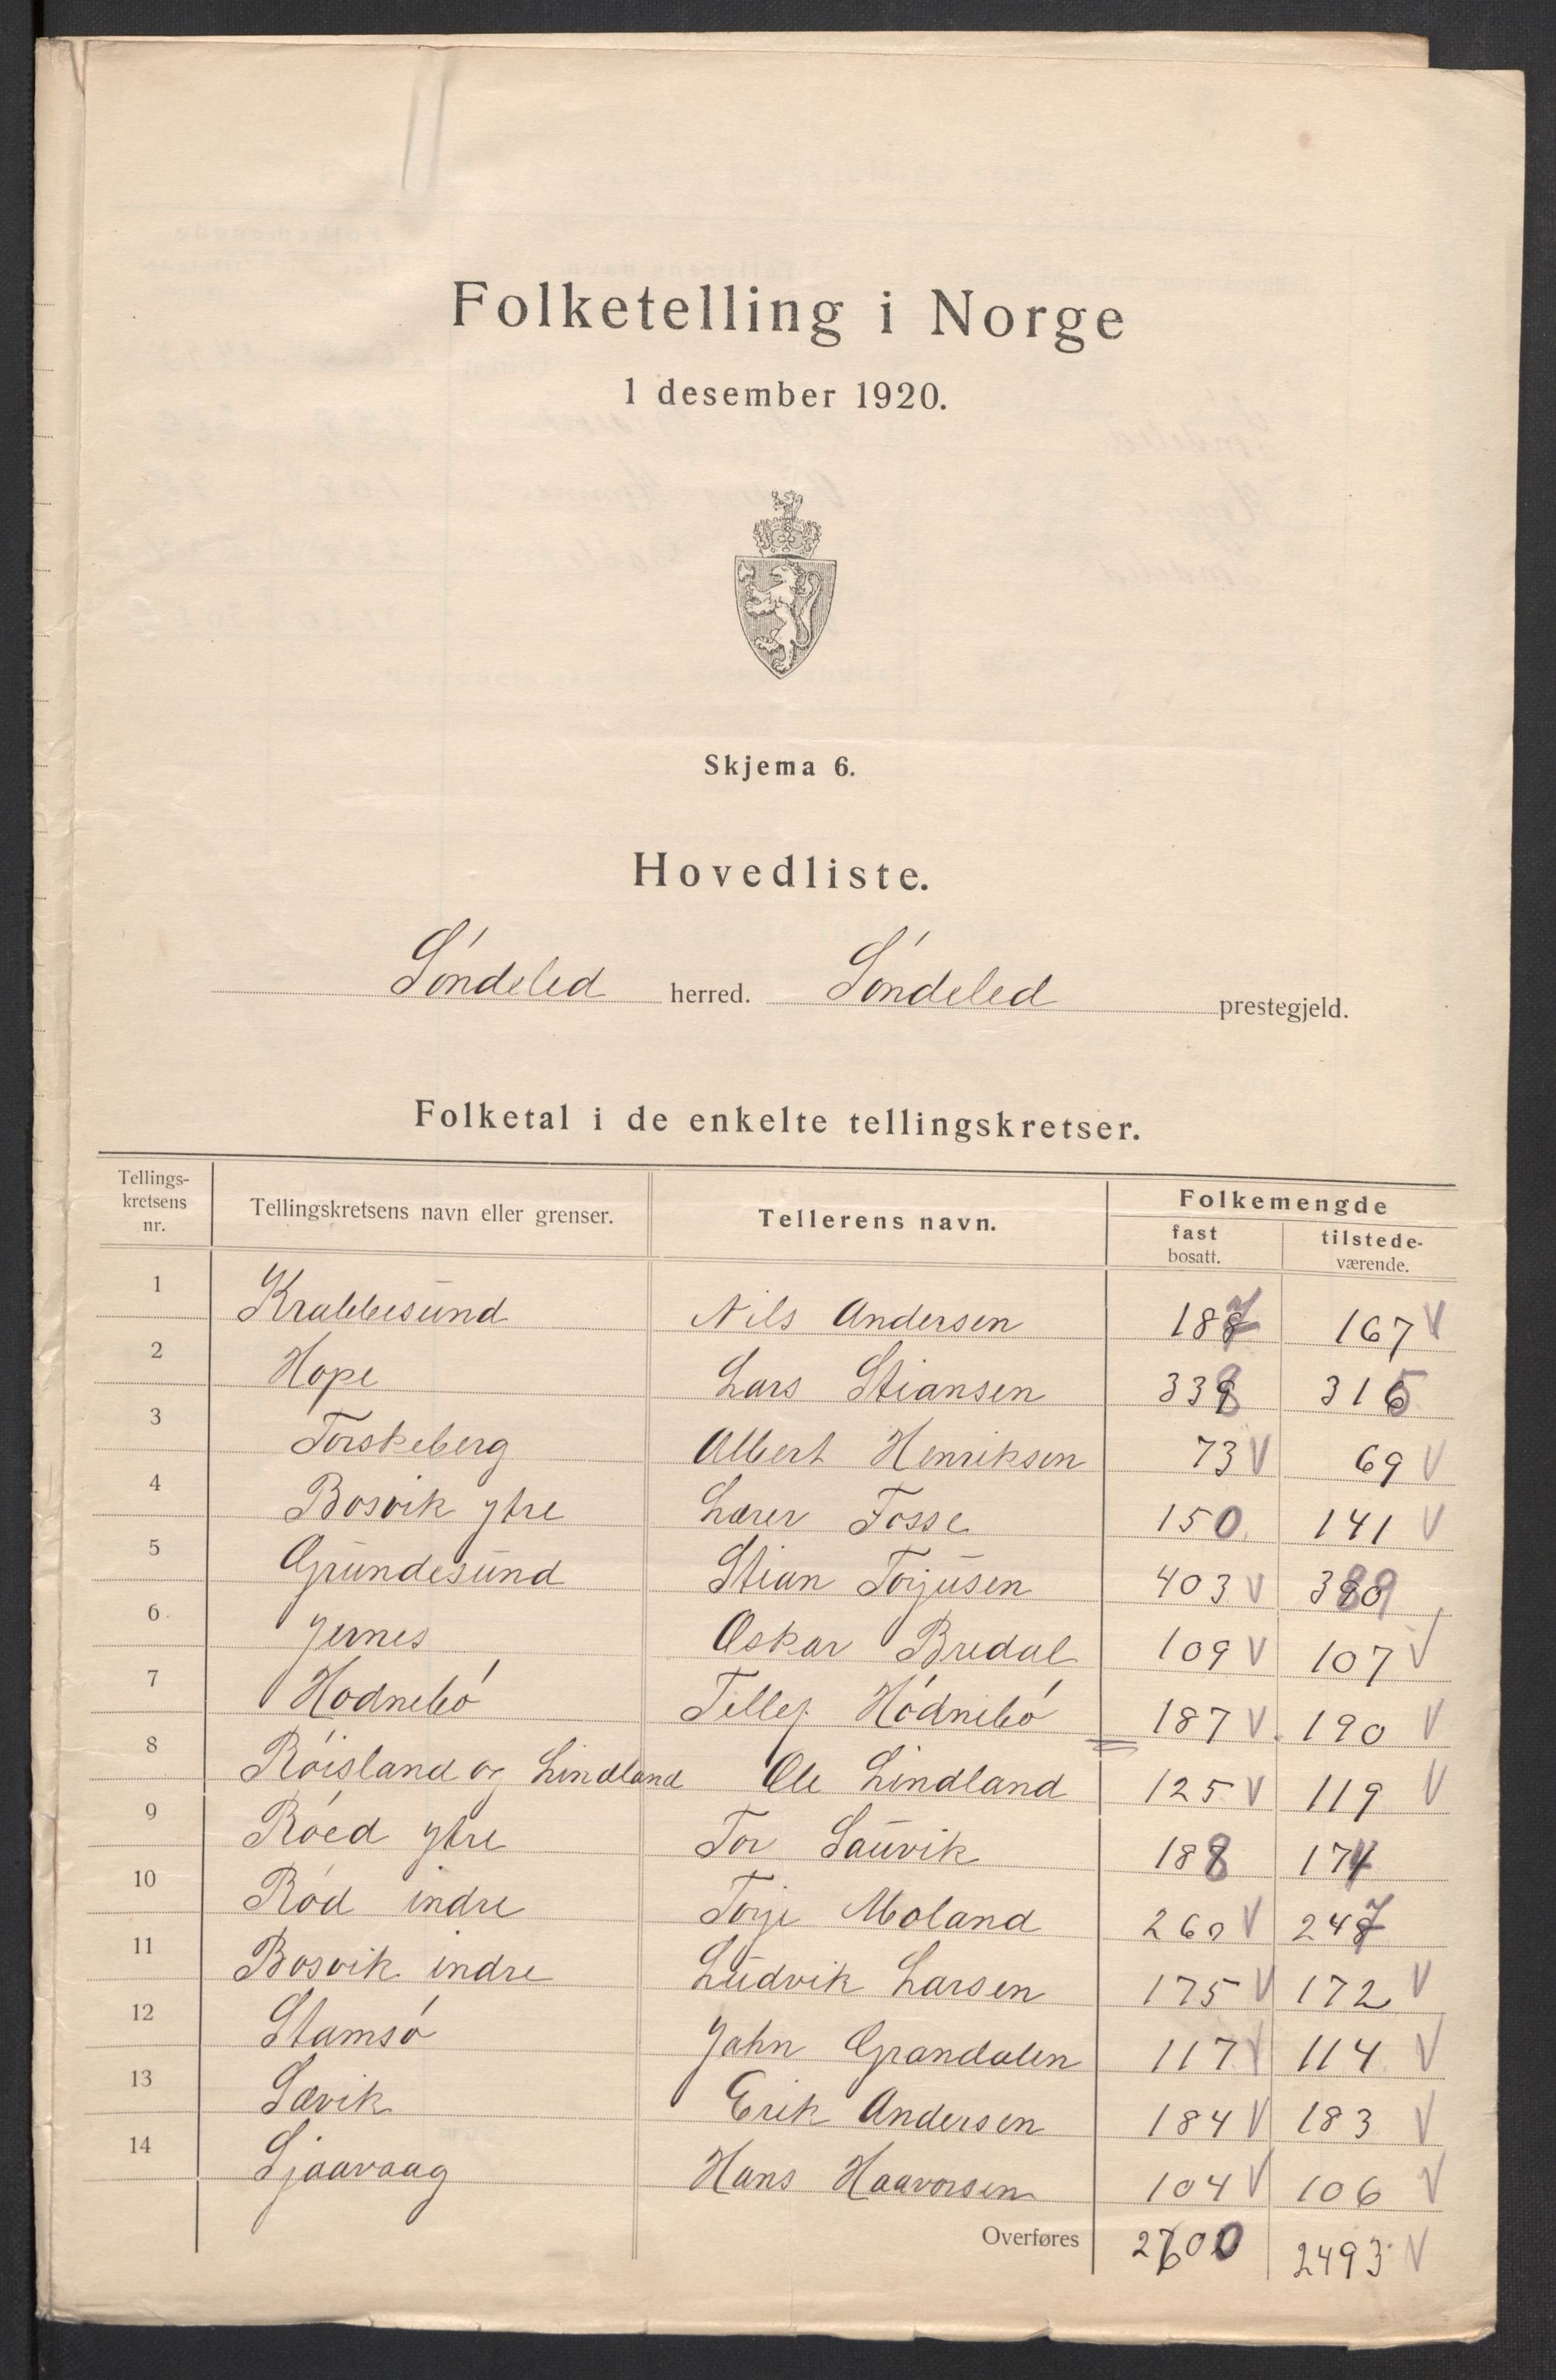 Folketelling i Norge
1 desember 1920.
Skjema 6.
Hovedliste.
Söndeled herred. Söndeled prestegjeld.
Folketal i de enkelte tellingskretser.
Tellings-
kretsens
nr.
Tellingskretsens navn eller grenser.
Tellerens navn.
Folkemengde
fast
bosatt.
tilstede-
værende.
1 Krabbesund Nils Andersen 187 167 V
2 Hope Lars Stiansen 338 315
3 Torskeberg Albert Henriksen 73 V 69 V
4 Bosvik ytre Lærer Fosse 150 141 V
5 Grundesund Stian Torjusen 403 V 389
6 Jernes Oskar Bredal 109 V 107 V
7 Hodnebó Tellef Hódnebó 187 V 190 V
8 Róisland og Lindland Ole Lindland 125 V 119 V
9 Róed ytre Tor Sauvik 188 174
10 Ród indre Torje Moland 260 V 247
11 Bosvik indre Ludvik Larsen 175 V 172 V
12 Stamsó Jahn Grandalen 117 V 114 V
13 Sævik Erik Andersen 184 V 183 V
14 Sjaavaag Hans Haavorsen 104 V 106 V
Overføres 2600 2493 V